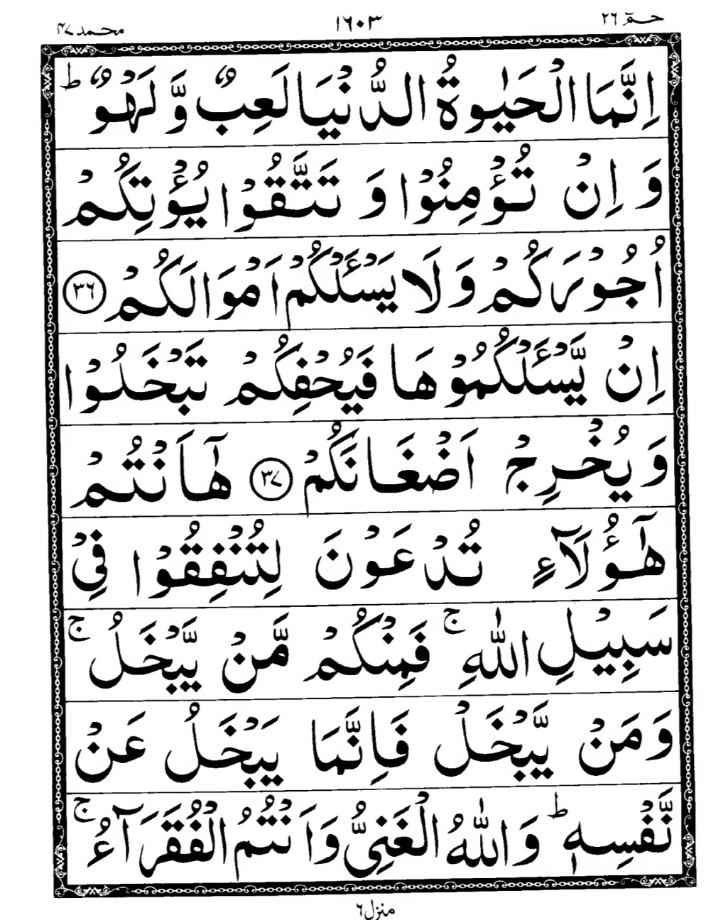 حٰمٓ ٢٦ ١٦٠٣ محمد ٤٧
اِنَّمَا الْحَيٰوةُ الدُّنْيَا لَعِبٌ وَّ لَهْوٌ ؕ
وَ اِنْ تُؤْمِنُوْا وَ تَتَّقُوْا يُؤْتِكُمْ
اُجُوْرَكُمْ وَ لَا يَسْـَٔلْكُمْ اَمْوَالَكُمْ ٣٦
اِنْ يَّسْـَٔلْكُمُوْهَا فَيُحْفِكُمْ تَبْخَلُوْا
وَ يُخْرِجْ اَضْغَانَكُمْ ٣٧ هٰۤاَنْتُمْ
هٰۤؤُلَآءِ تُدْعَوْنَ لِتُنْفِقُوْا فِيْ
سَبِيْلِ اللّٰهِ ۚ فَمِنْكُمْ مَّنْ يَّبْخَلُ ۚ
وَ مَنْ يَّبْخَلْ فَاِنَّمَا يَبْخَلُ عَنْ
نَّفْسِهٖ ؕ وَ اللّٰهُ الْغَنِيُّ وَ اَنْتُمُ الْفُقَرَآءُ ۚ
منزل ٦